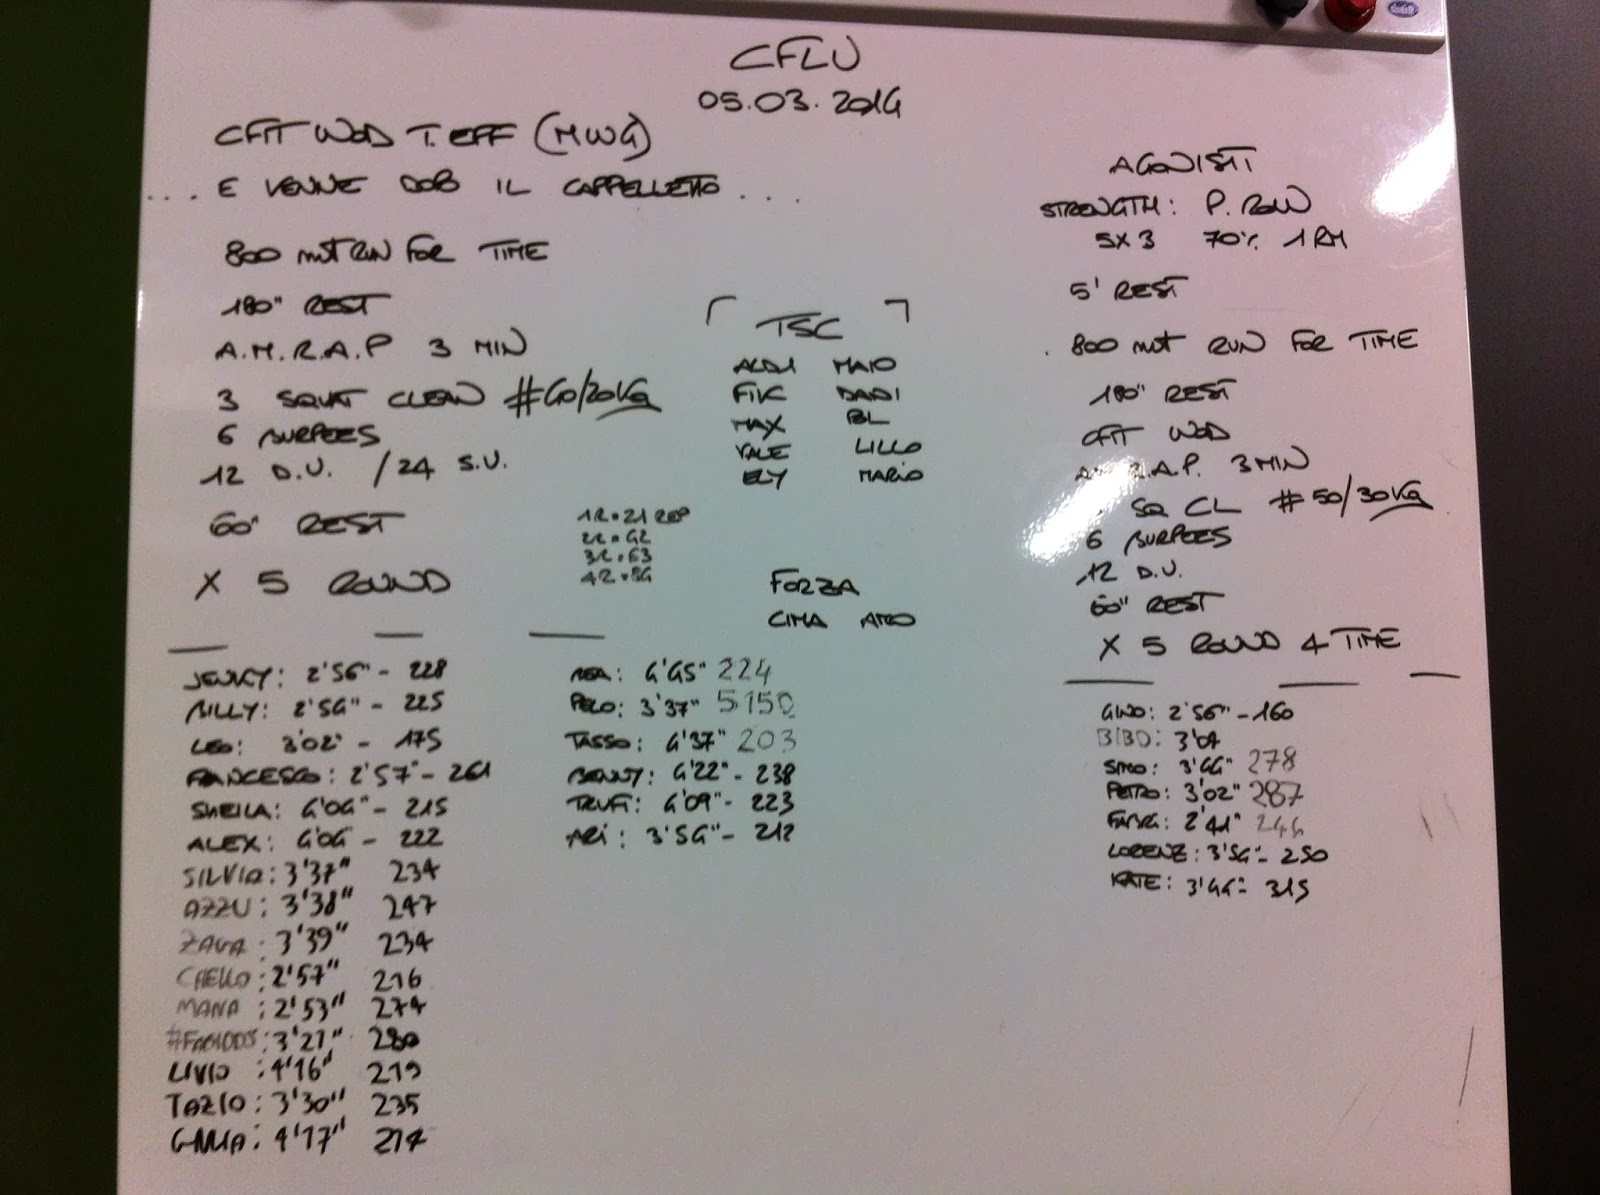 CFLU
05.03.2014
CFIT WOD T. EFF (MWG)
... E VENNE DOB IL CAPPELLETTO ...
800 mt RUN FOR TIME
180" REST
A.M.R.A.P 3 MIN
3 SQUAT CLEAN #40/20KG
6 BURPEES
12 D.U. /24 S.U.
60" REST
X 5 ROUND
1R=21 REP
2R=42
3R=63
4R=84
TSC
ALDI MAIO
FIK DADI
MAX BL
VALE LILLO
ELY MARIO
FORZA
CIMA
AGONISTI
STRENGTH: P. ROW
5X3 70% 1RM
5' REST
800 mt RUN FOR TIME
180" REST
CFIT WOD
A.M.R.A.P. 3 MIN
SQ CL #50/30KG
6 BURPEES
12 D.U.
60" REST
X 5 ROUND 4 TIME
JENKY: 2'56" - 228
BILLY: 2'54" - 225
LEO: 3'02" - 175
FRANCESCO: 2'57" - 261
SHEILA: 4'04" - 215
ALEX: 4'04" - 222
SILVIA: 3'37" 234
AZZU: 3'38" 247
ZAGA: 3'39" 234
CHELLO: 2'57" 216
MANA: 2'53" 274
3'27" 280
LIVIO: 4'16" 219
TAZIO: 3'30" 235
4'17" 214
REA: 4'45" 224
PELO: 3'37" 5150
TASSO: 4'37" 203
BENNY: 4'22" - 238
TRUFI: 4'09" - 223
ARI: 3'54" - 212
GINO: 2'56" - 160
BIBO: 3'07
SIMO: 3'44" 278
PETRO: 3'02" 287
2'41" 244
LORENZ: 3'54" - 250
KATE: 3'44" - 315